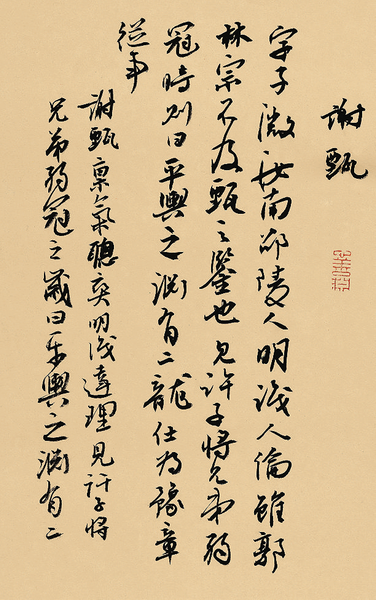 謝甄
字子微汝南邵陵人明識人倫雖郭
林宗不及甄之鑒也見許子將兄弟弱
冠時則曰平輿之淵有二龍仕為豫章
從事
謝甄稟氣聰爽明識達理見許子將
兄弟弱冠之歲曰平輿之淵有二